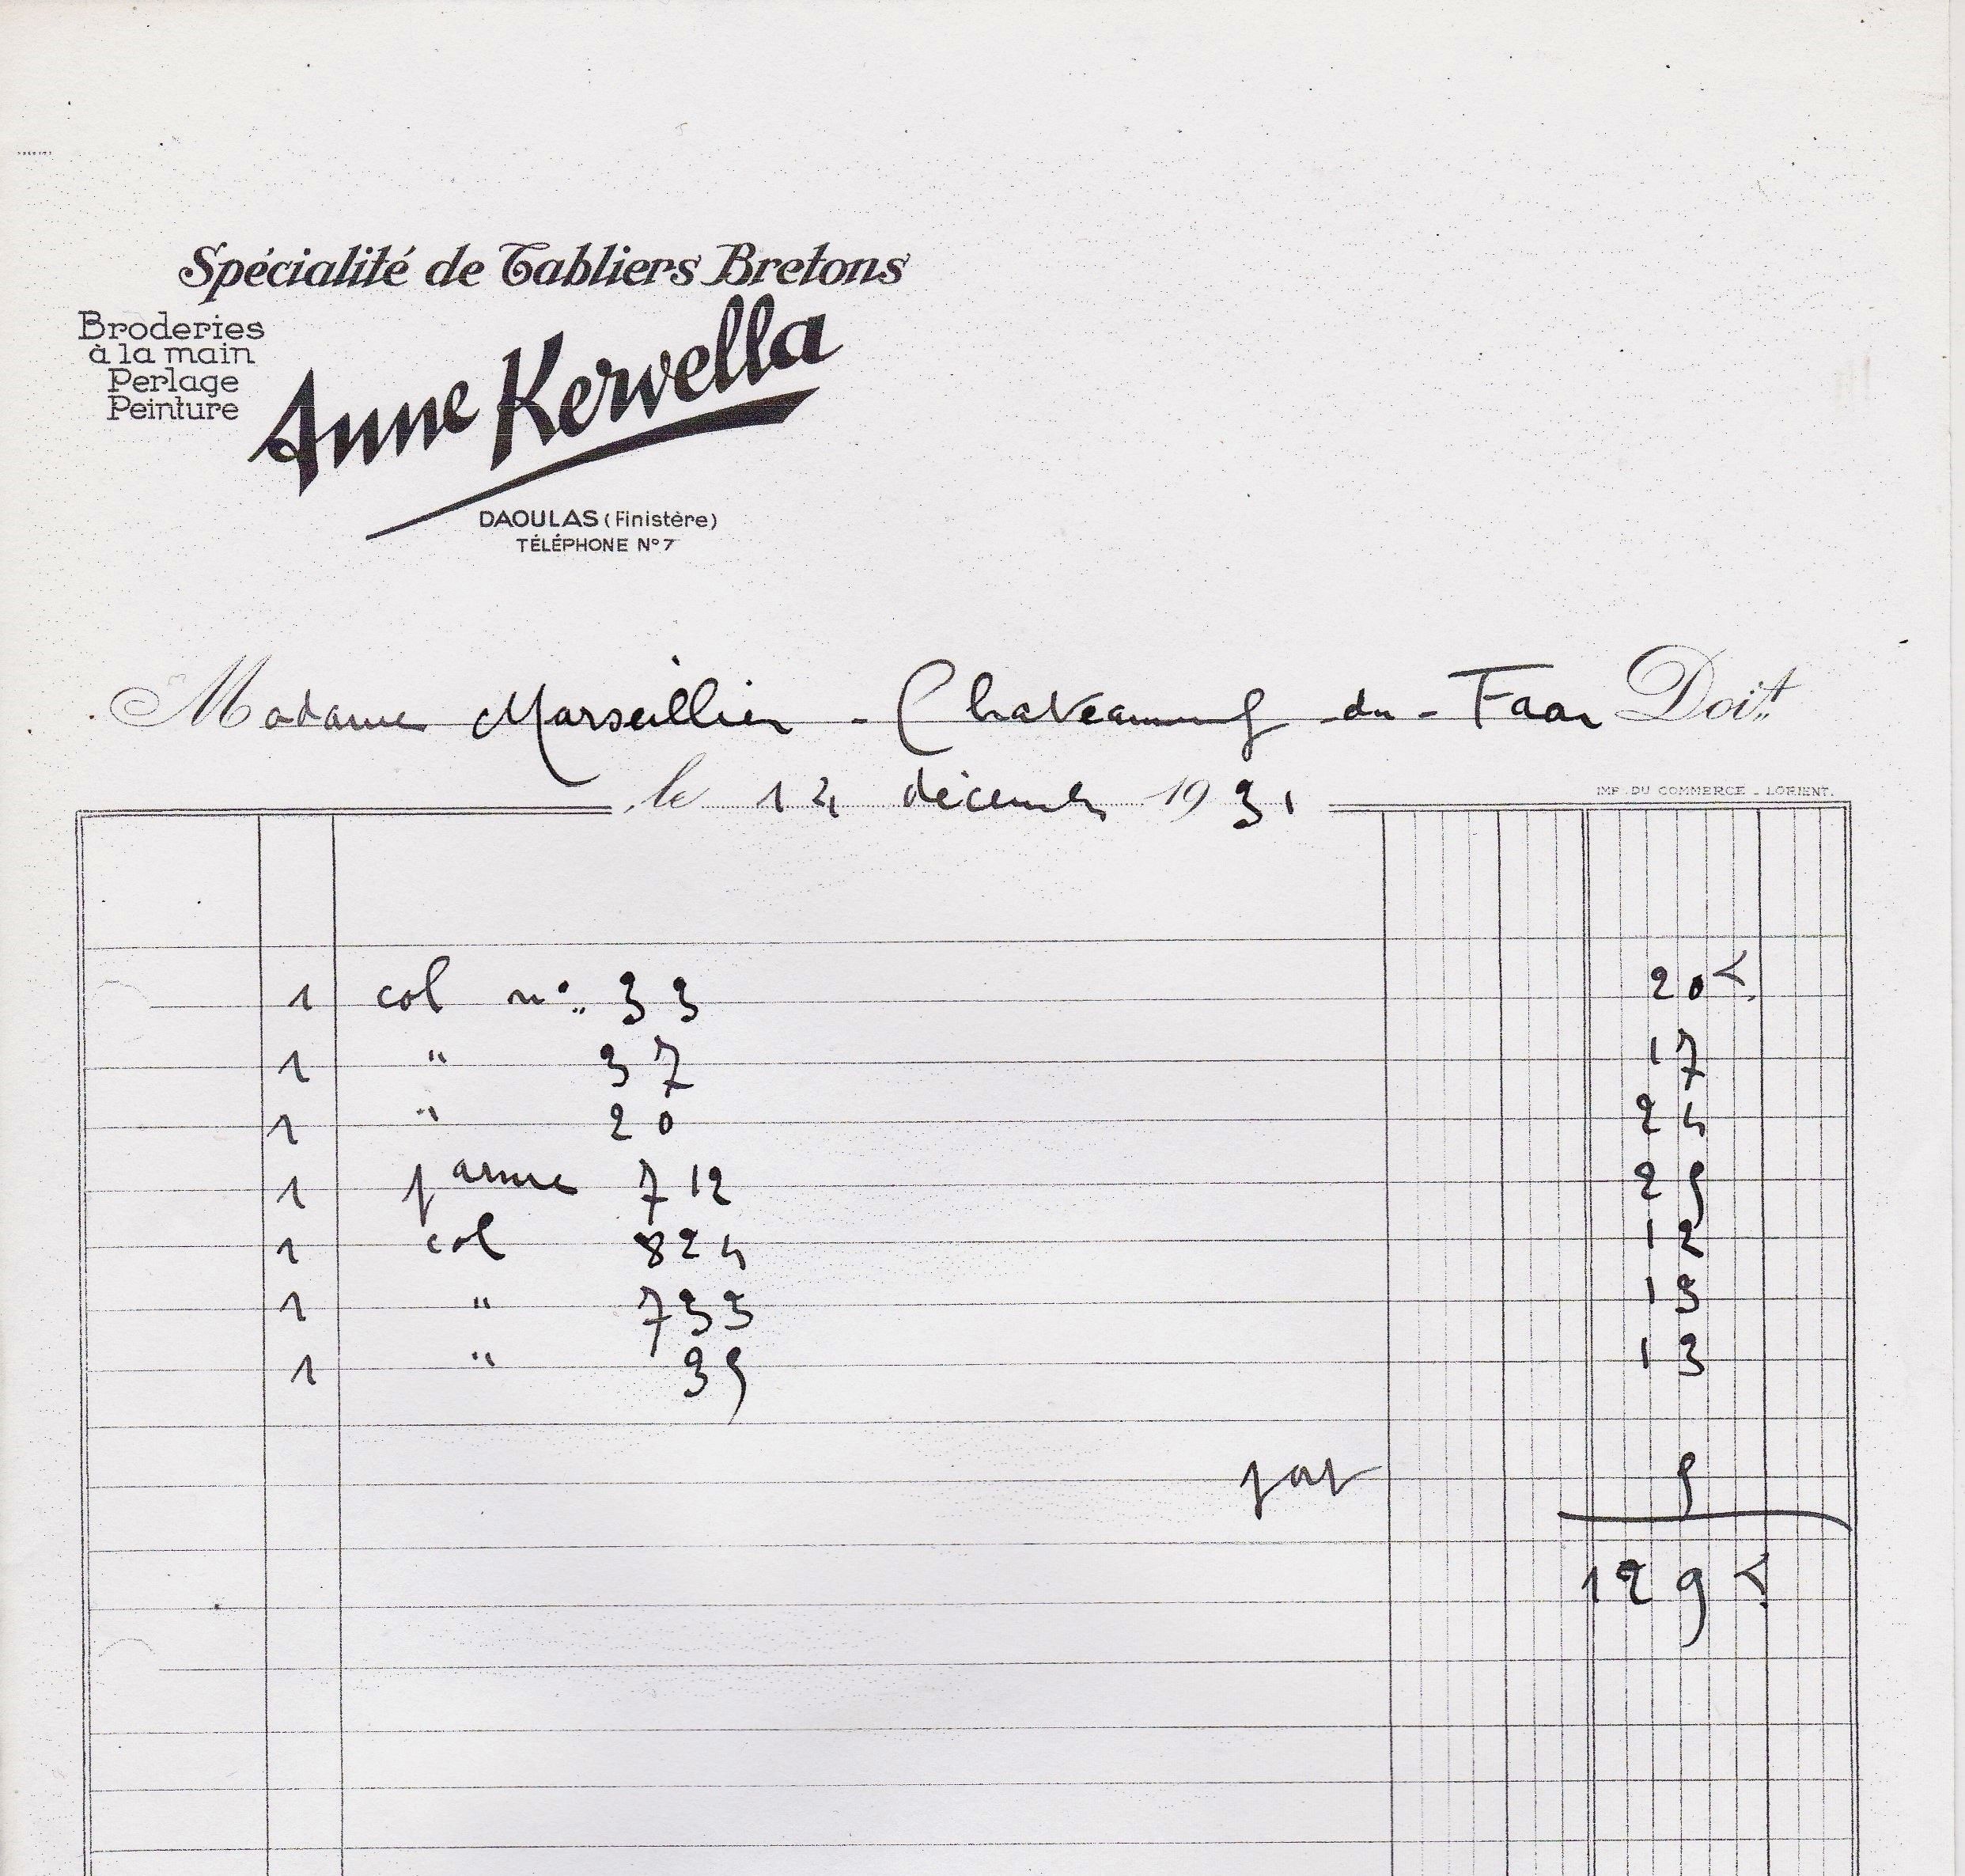 Spécialité de Tabliers Bretons
Broderies
à la main
Perlage
Peinture
Anne Kervella
DAOULAS (Finistère)
TÉLÉPHONE N° 7
Madame Marseillier - Chateauneuf - du - Faou Doit
le 14 décembre 1931
IMP. DU COMMERCE - LORIENT.
1 col n° 33 20 f.
1 " 37 17
1 " 20 24
1 panne 712 25
1 col 824 12
1 " 733 13
1 " 35 13
port 5
129 f.